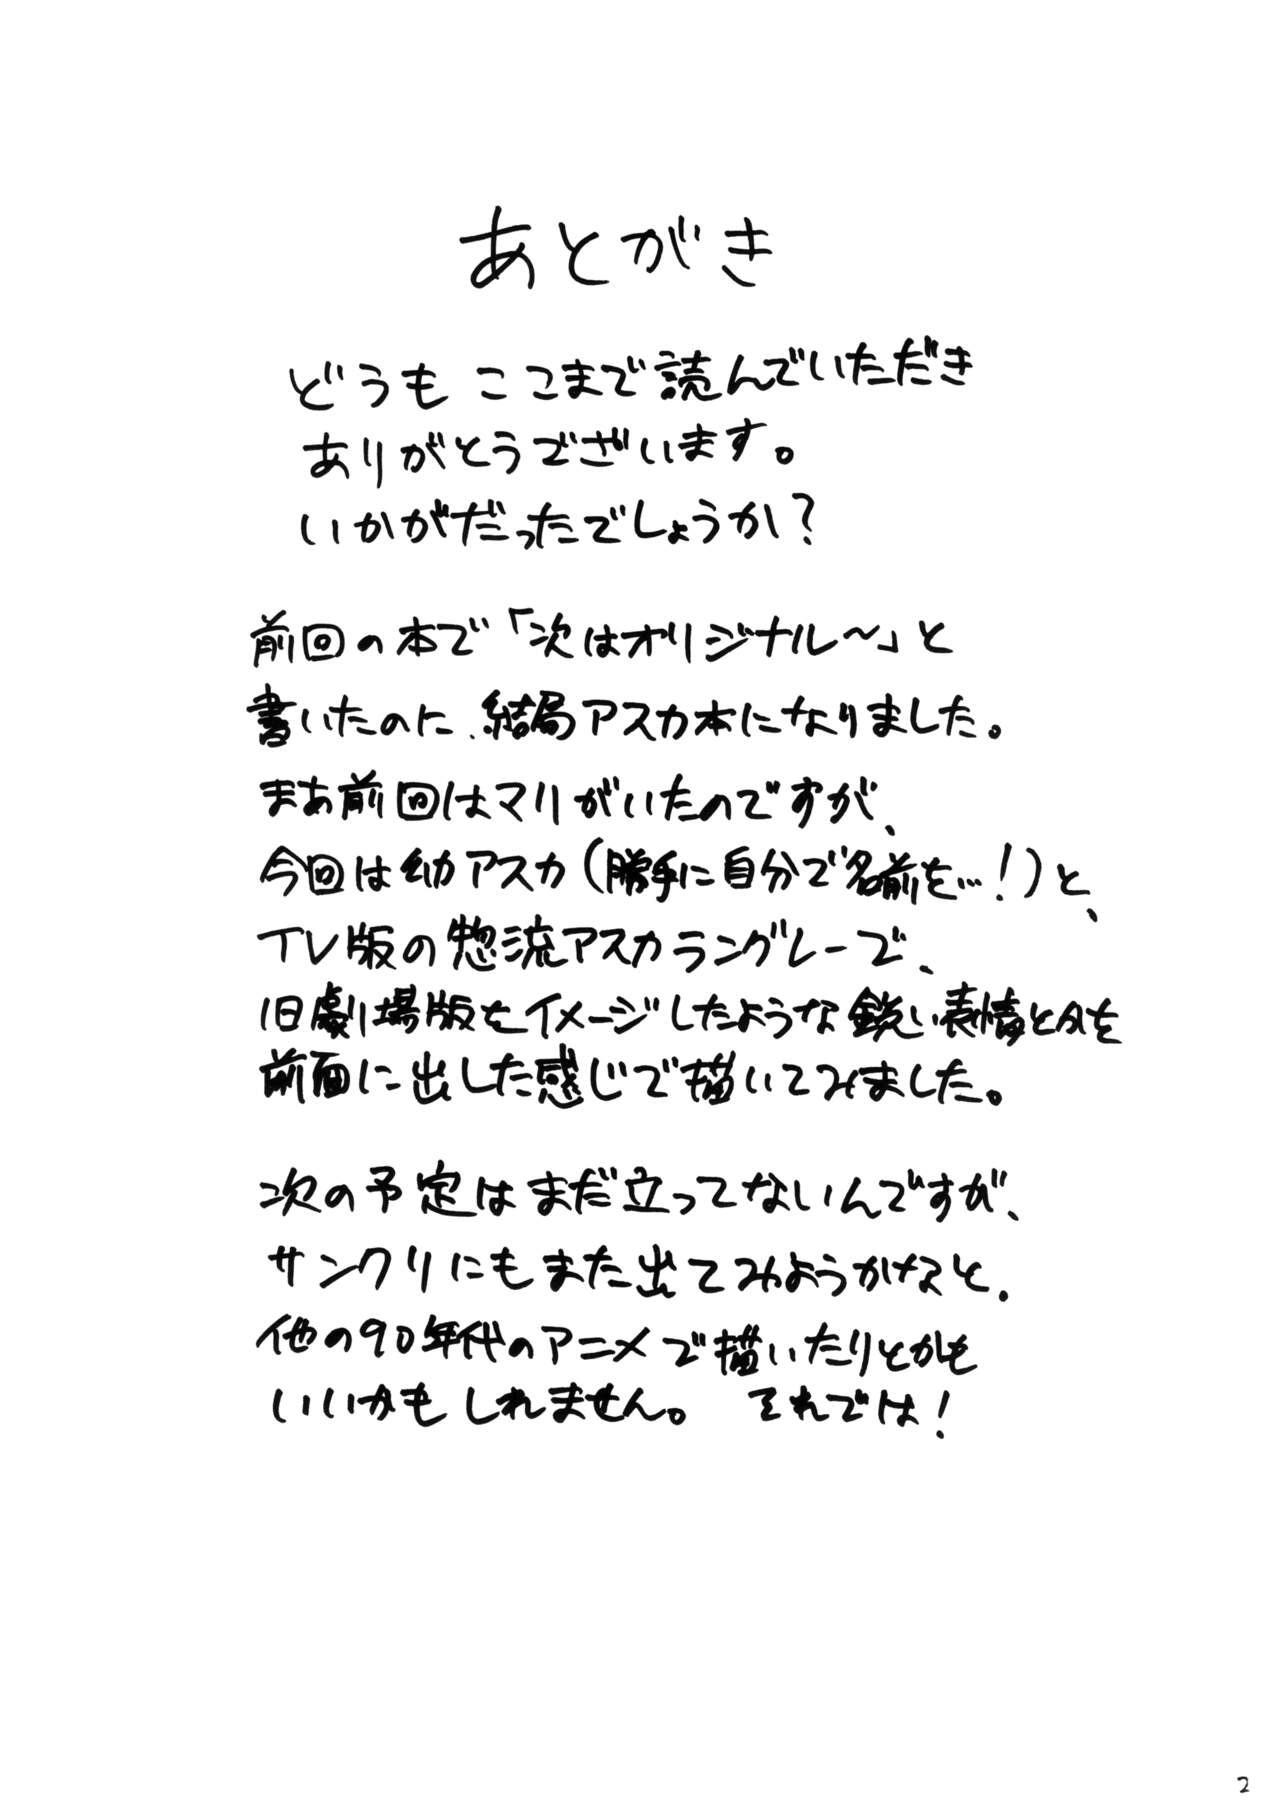 あとがき
どうも ここまで読んでいただき
ありがとうございます。
いかがだったでしょうか?
前回の本で「次はオリジナル～」と
書いたのに、結局アスカ本になりました。
まあ前回はマリがいたのですが、
今回は幼アスカ(勝手に自分で名前を…!)と、
TV版の惣流アスカラングレーで、
旧劇場版をイメージしたような鋭い表情と
前面に出した感じで描いてみました。
次の予定はまだ立ってないんですが、
サンクリにもまた出てみようかなと、
他の90年代のアニメで描いたりとかも
いいかもしれません。 それでは!
2